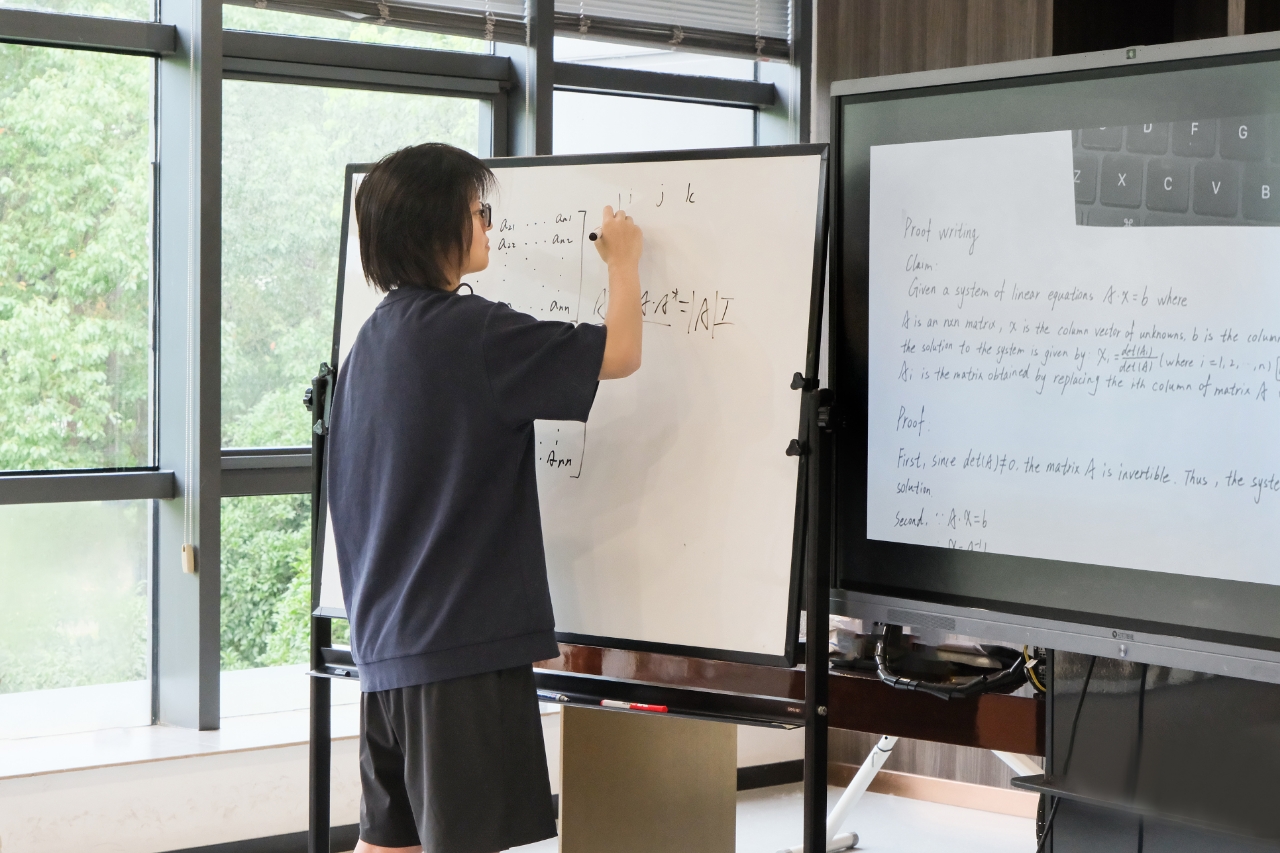 i j k
a₂₁ ... aₙ₁
a₂₂ ... aₙ₂
aₙₙ
A·A*=|A|I
Aₙₙ
D F G
Z X C V B
⌘
Proof writing
Claim:
Given a system of linear equations A·x=b where
A is an nxn matrix, x is the column vector of unknowns, b is the column
the solution to the system is given by: Xᵢ=det(Aᵢ)/det(A) (where i=1,2, ..., n)
Aᵢ is the matrix obtained by replacing the ith column of matrix A
Proof.
First, since det(A)≠0. the matrix A is invertible. Thus, the syste
solution
Second. ∵ A·X=b